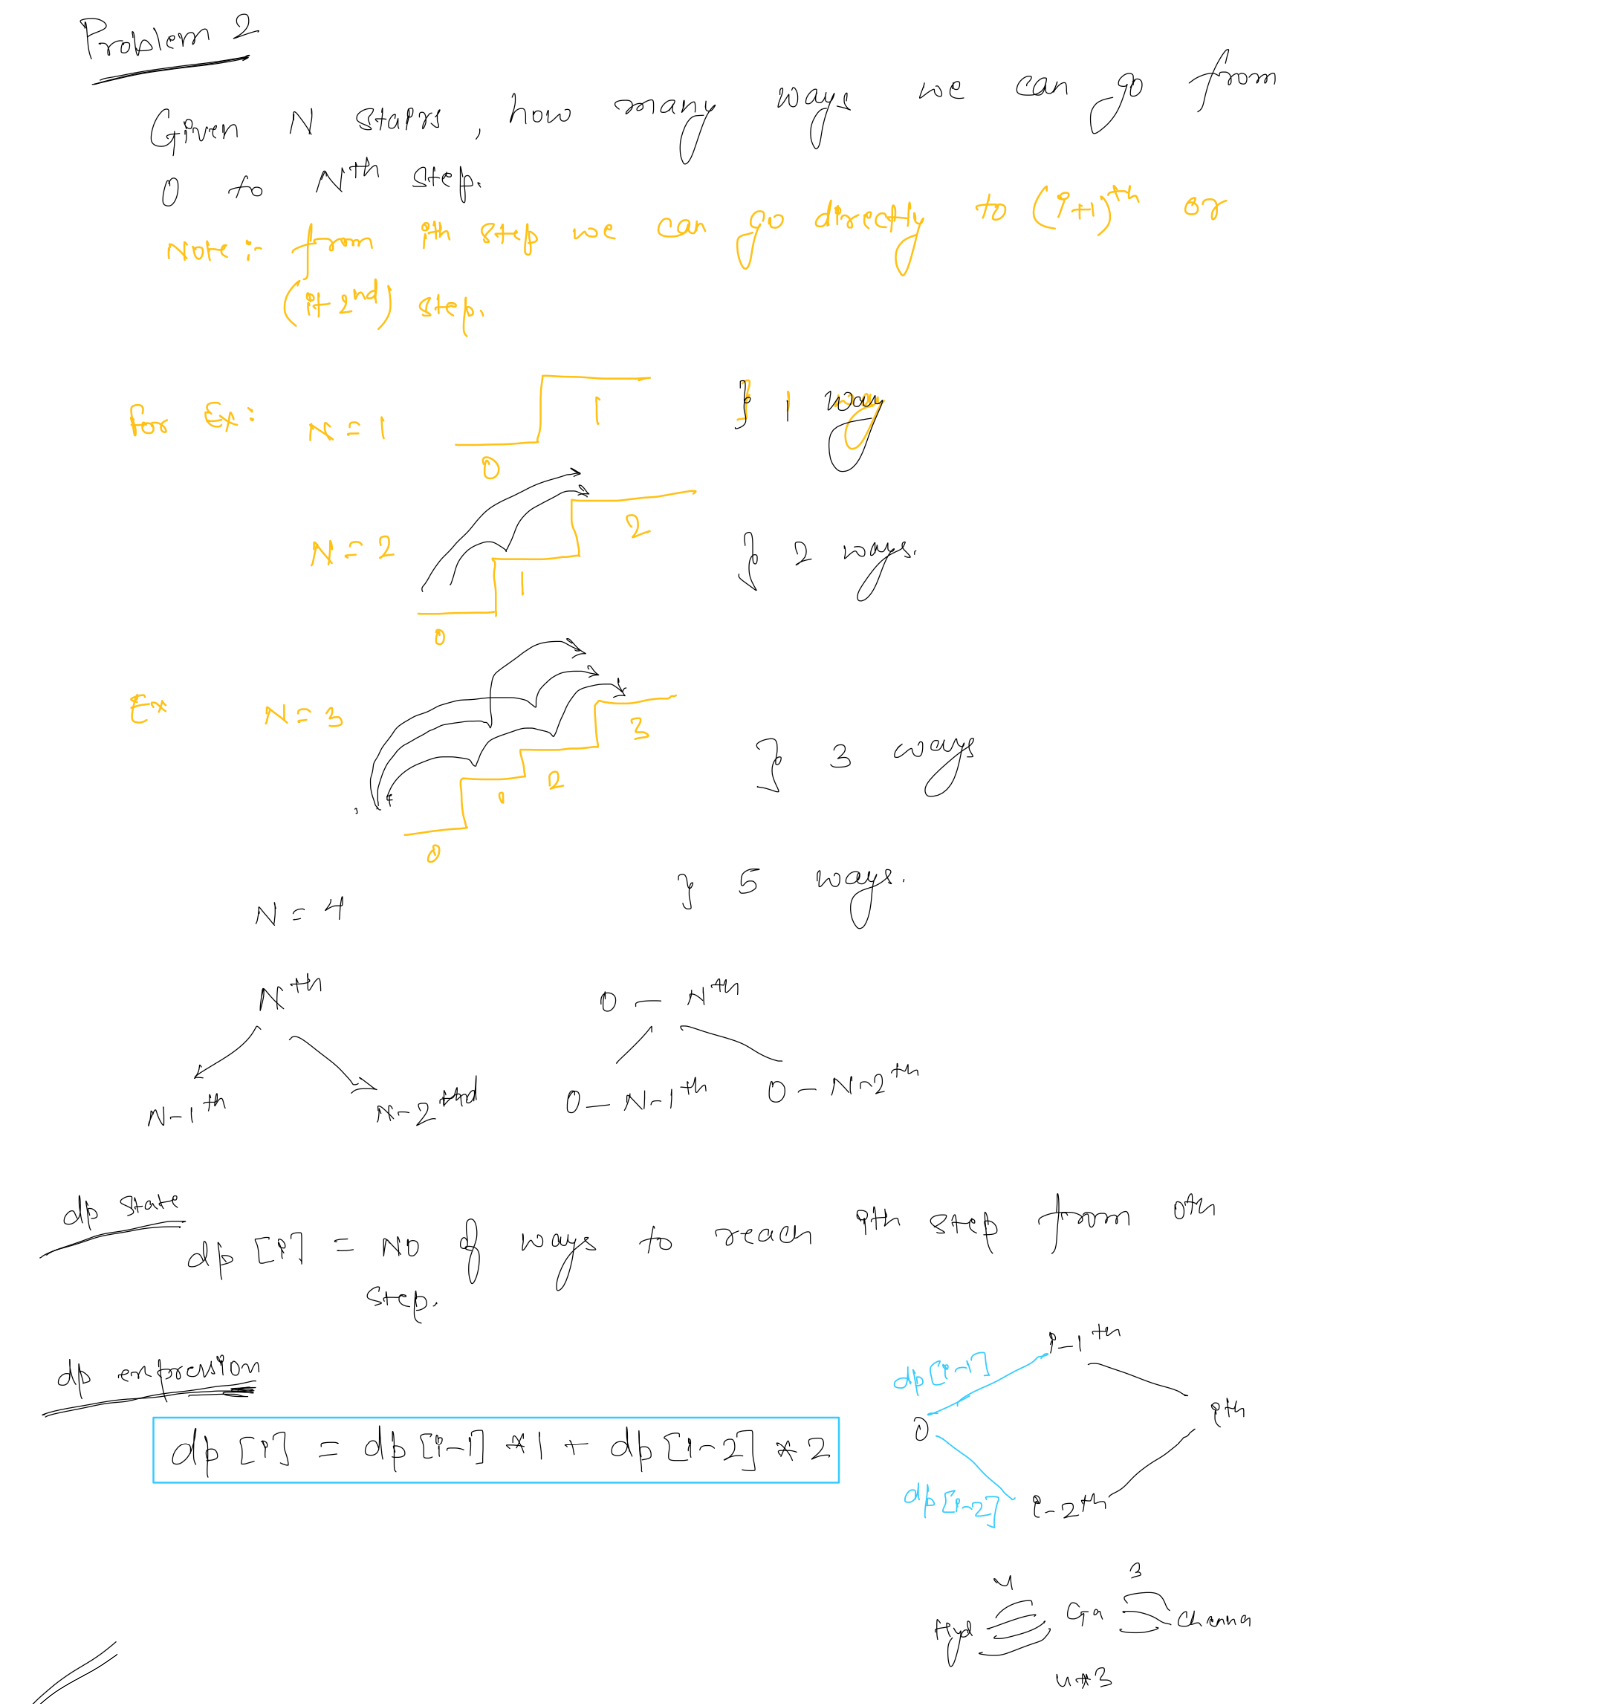 Problem 2
Given N stairs, how many ways we can go from
0 to Nth step.
Note :- from ith step we can go directly to (i+1)th or
(i+2nd) step.
for Ex: N = 1
0
1
} 1 way
N = 2
0
1
2
} 2 ways.
Ex N = 3
0
1
2
3
} 3 ways
N = 4 } 5 ways.
Nth
N-1th
N-2nd
0 - Nth
0 - N-1th
0 - N-2th
dp state
dp [i] = NO of ways to reach ith step from 0th
step.
dp expression
dp [i] = dp [i-1] * 1 + dp [i-2] * 2
dp[i-1]
i-1th
0
ith
dp[i-2]
i-2th
4
3
Hyd
Ga
Chenna
4*3